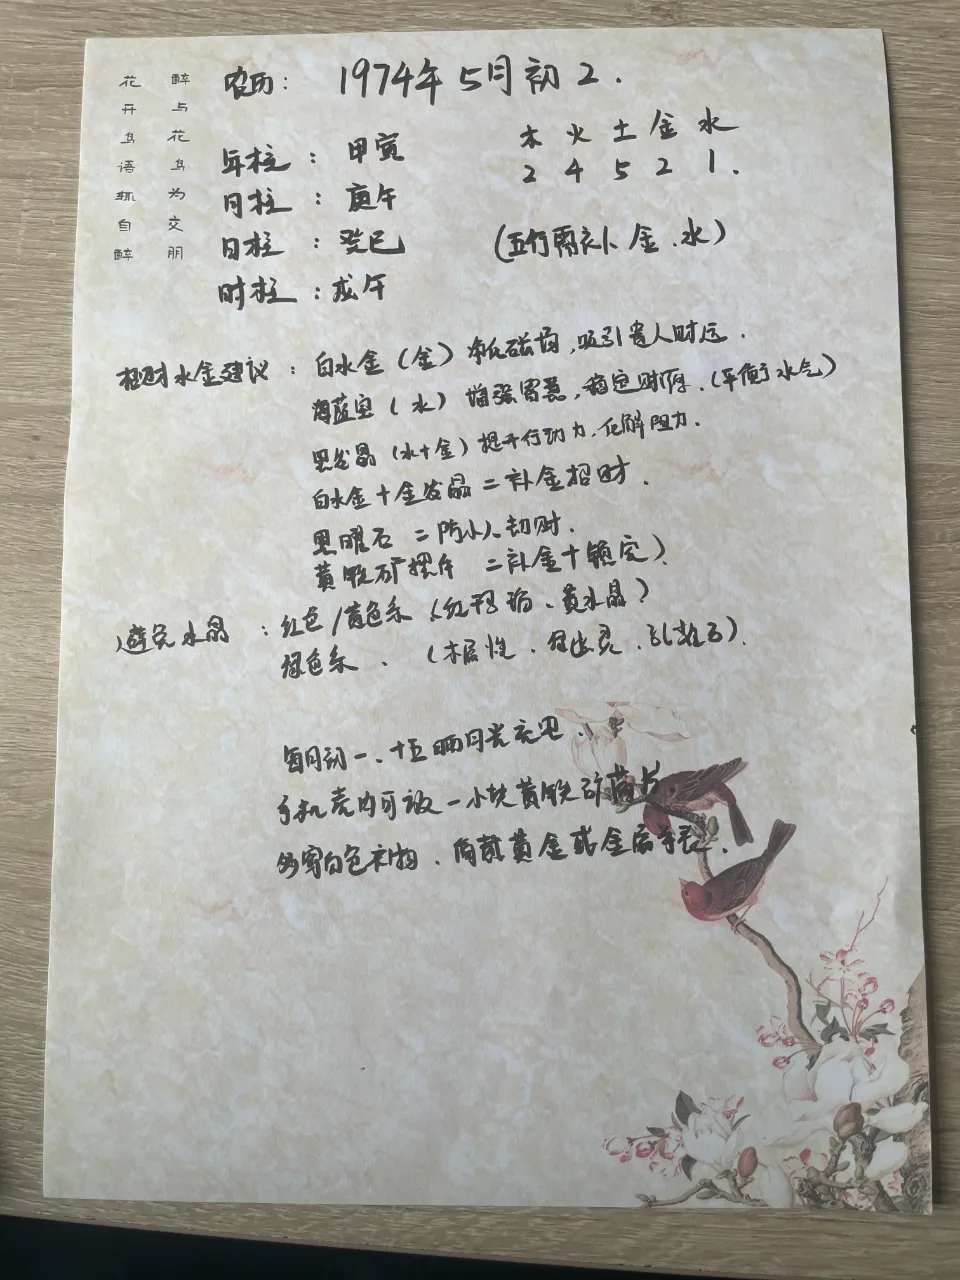 醉与花鸟为交朋
花开鸟语辄自醉
农历：1974年5月初2．
年柱：甲寅
木火土金水
2 4 5 2 1．
月柱：庚午
日柱：癸巳
(五行需补金、水)
时柱：戊午
招财水金建议：白水金（金）净化磁场，吸引贵人财运．
海蓝宝（水）增强智慧，稳定财源．（平衡水气）
黑发晶（水+金）提升行动力，化解阻力．
白水金+金发晶=补金招财．
黑曜石=防小人劫财．
黄铁矿摆件=补金+镇宅）
避免水晶：红色/黄色系（红玛瑙、黄水晶）
绿色系．（木属性、绿幽灵、孔雀石）．
每月初一、十五晒月光充电．
手机壳内可放一小块黄铁矿薄片
多穿白色衣物．佩戴黄金或金属手表．